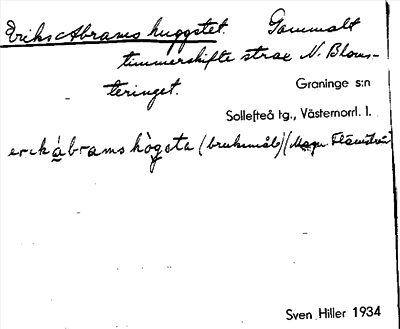 Eriks Abrams huggstet. Gammalt
timmerskifte strax N. Bloms-
teringet.
Graninge s:n
Sollefteå tg., Västernorrl. l.
erɩkábrams hògsta (bruksmåls) (Magn.
Sven Hiller 1934